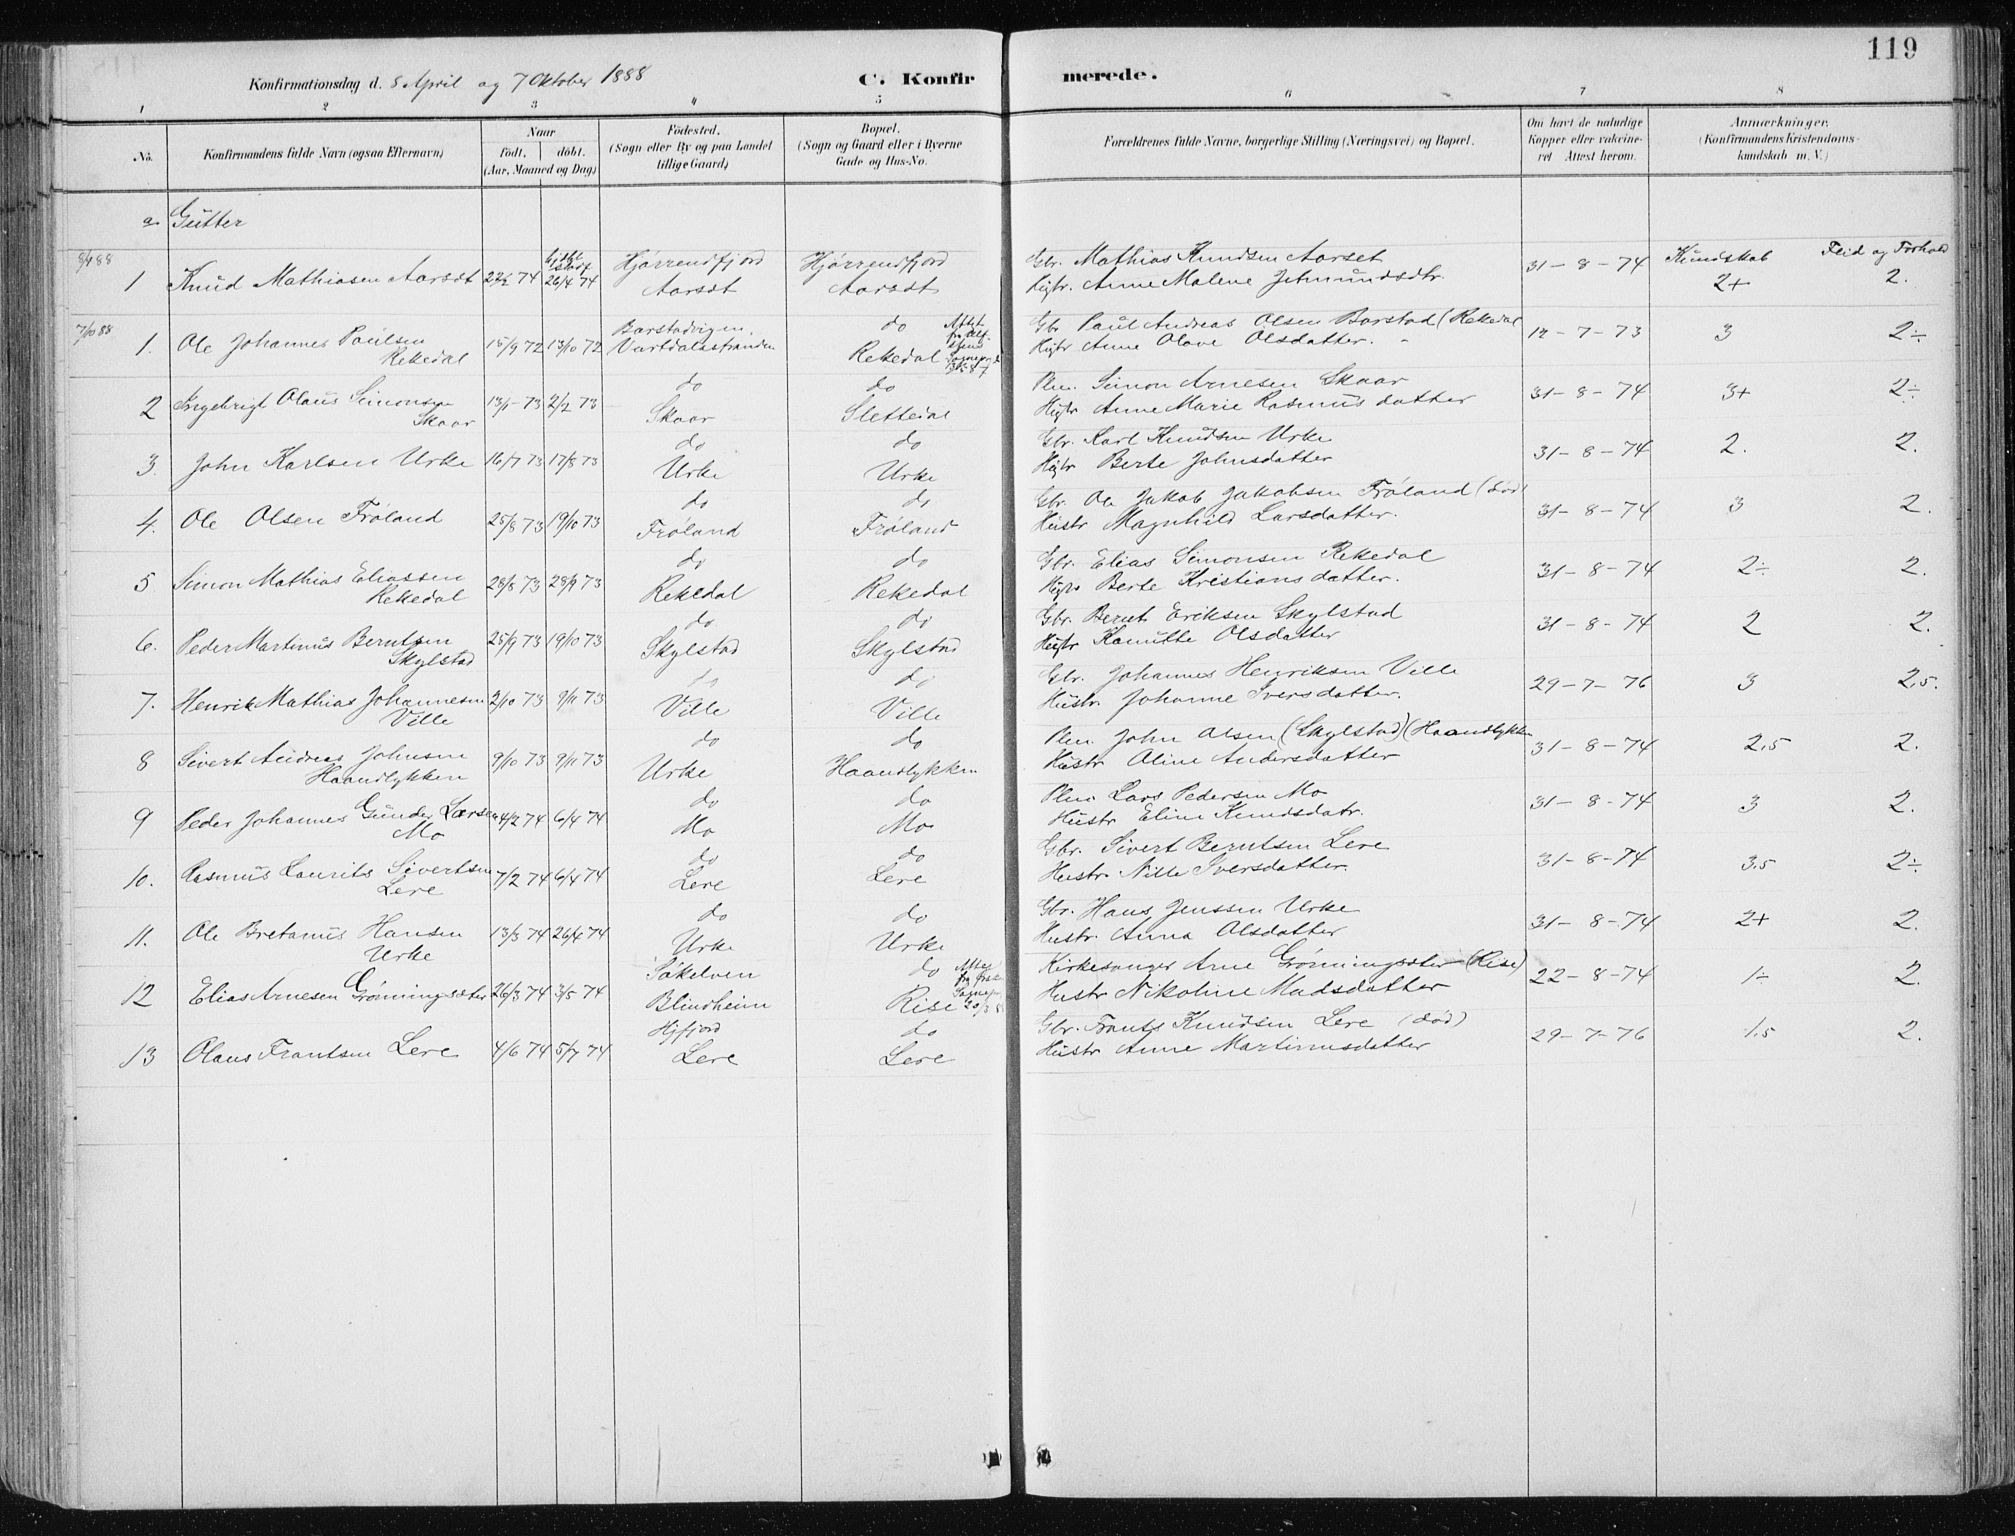 119
Konfirmationsdag d. 8 April og 7 Oktober 1888
C. Konfirmerede.
1 2 3 4 5 6 7 8
No.
Konfirmandens fulde Navn (ogsaa Efternavn)
Naar
födt, döbt.
(Aar, Maaned og Dag)
Födested.
(Sogn eller By og paa Landet
tillige Gaard)
Bopæl.
(Sogn og Gaard eller i Byerne
Gade og Hus-No.
Forældrenes fulde Navne, borgerlige Stilling (Næringsvei) og Bopæl.
Om havt de naturlige
Kopper eller vakcine-
ret Attest herom.
Anmærkninger.
(Konfirmandens Kristendoms-
kundskab m. V.)
a. Gutter
8/4 88 Kundskab Flid og Forhold
1 Knud Mathiasen Aarset 22/2 74 26/4 74
Hjørrendfjord Aarset
Hjørrendfjord Aarset
Gbr. Mathias Knudsen Aarset
Hustr. Anne Malene Jetmundsdtr.
31-8-74 2+ 2.
7/10 88
1. Ole Johannes Paulsen
Rekedal 15/9 72 13/10 72
Barstadvigen
Vartdalsstranden
do Rekedal
Gbr Paul Andreas Olsen Barstad (Rekedal
Hustr Anne Olave Olsdatter.
12-7-73 3 2÷
2 Ingebrigt Olaus Simonsen
Skaar 13/1 73 2/2 73
do Skaar
do Slettedal
Plm. Simon Arnesen Skaar
Hustr Anne Marie Rasmusdatter
31-8-74 3+ 2÷
3. John Karlsen Urke 16/7 73 17/8 73
do Urke
do Urke
Gbr. Karl Knudsen Urke
Hustr Berte Johnsdatter
31-8-74 2. 2.
4. Ole Olsen Frøland 25/8 73 19/10 73
do Frøland
do Frøland
Gbr. Ole Jakob Jakobsen Frøland (død)
Hustr Magnhild Larsdatter.
31-8-74 3 2.
5 Simon Mathias Eliassen
Rekedal 28/8 73 28/9 73
do Rekedal
do Rekedal
Gbr. Elias Simonsen Rekedal
Hustr Berte Kristiansdatter.
31-8-74 2÷ 2.
6. Peder Martinus Berntsen
Skylstad 25/9 73 19/10 73
do Skylstad
do Skylstad
Gbr. Bernt Eriksen Skylstad
Hustr Kanutte Olsdatter
31-8-74 2 2.
7. Henrik Mathias Johannesen
Ville 2/10 73 9/11 73
do Ville
do Ville
Gbr. Johannes Henriksen Ville
Hustr. Johanne Iversdatter.
29-7-76 3 2,5.
8 Sivert Andreas Johnsen
Haandlykken 9/10 73 9/11 73
do Urke
do Haandlykken
Plm. John Olsen (Skylstad) (Haandlykken
Hustr Aline Andersdatter
31-8-74 2,5 2.
9 Peder Johannes Gunder Larsen
Mo 4/2 74 6/4 74
do Mo
do Mo
Plm. Lars Pedersen Mo
Hustr Eline Knudsdatr.
31-8-74 3 2.
10. Rasmus Laurits Sivertsen
Lere 7/2 74 6/4 74
do Lere
do Lere
Gbr. Sivert Berntsen Lere
Hustr. Nille Iversdatter.
31-8-74 3,5 2÷
11. Ole Bretanus Hansen
Urke 13/3 74 26/4 74
do Urke
do Urke
Gbr. Hans Jenssen Urke
Hustr. Anna Olsdatter
31-8-74 2+ 2.
12 Elias Arnesen Grønningsæter 26/3 74 3/5 74
Søkelven
Blindheim
do Rise
Kirkesanger Arne Grønningsæter (Rise)
Hustr Nikoline Madsdatter
22-8-74 1÷ 2.
13 Olaus Frantsen Lere 4/6 74 5/7 74
Hjfjord
Lere
do Lere
Gbr. Frants Knudsen Lere (død)
Hustr Anne Martinusdatter
29-7-76 1,5 2.